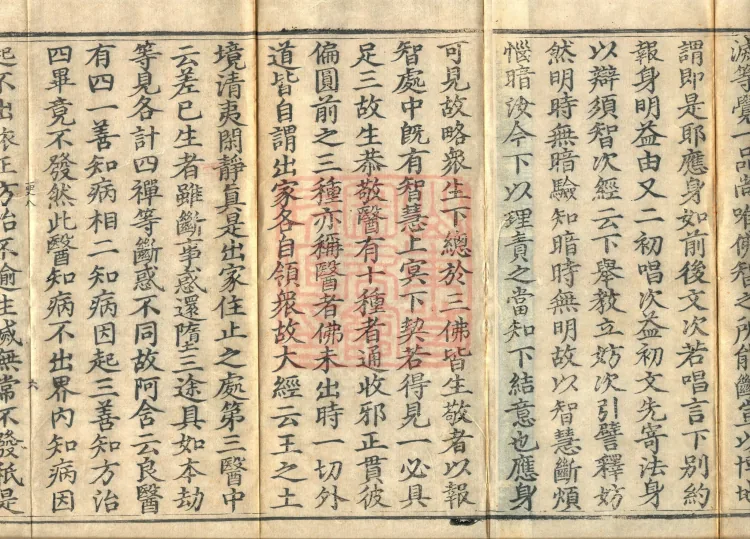 等覺一品尚唯佛智之所能斷豈以博地
謂即是耶應身如前後文次若唱言下別約
報身明益由又二初唱次益初文先寄法身
以辯須智次經云下舉教立妨次引譬釋妨
然明時無暗驗知暗時無明故以智慧斷煩
惱暗汝今下以理責之當知下結意也應身
可見故略衆生下總於三佛皆生敬者以報
智處中旣有智慧上冥下契若得見一必具
足三故生恭敬醫有十種者通收邪正貫彼
偏圓前之三種亦稱醫者佛未出時一切外
道皆自謂出家各自領衆故大經云王之土
境清夷閑靜真是出家住止之處第三醫中
云差已生者雖斷事惑還墮三途具如本劫
等見各計四禪等斷惑不同故阿舍云良醫
有四一善知病相二知病因起三善知方治
四畢竟不發然此醫知病不出界內知病因
起不出依正方治不逾生滅無常不發秖是
六